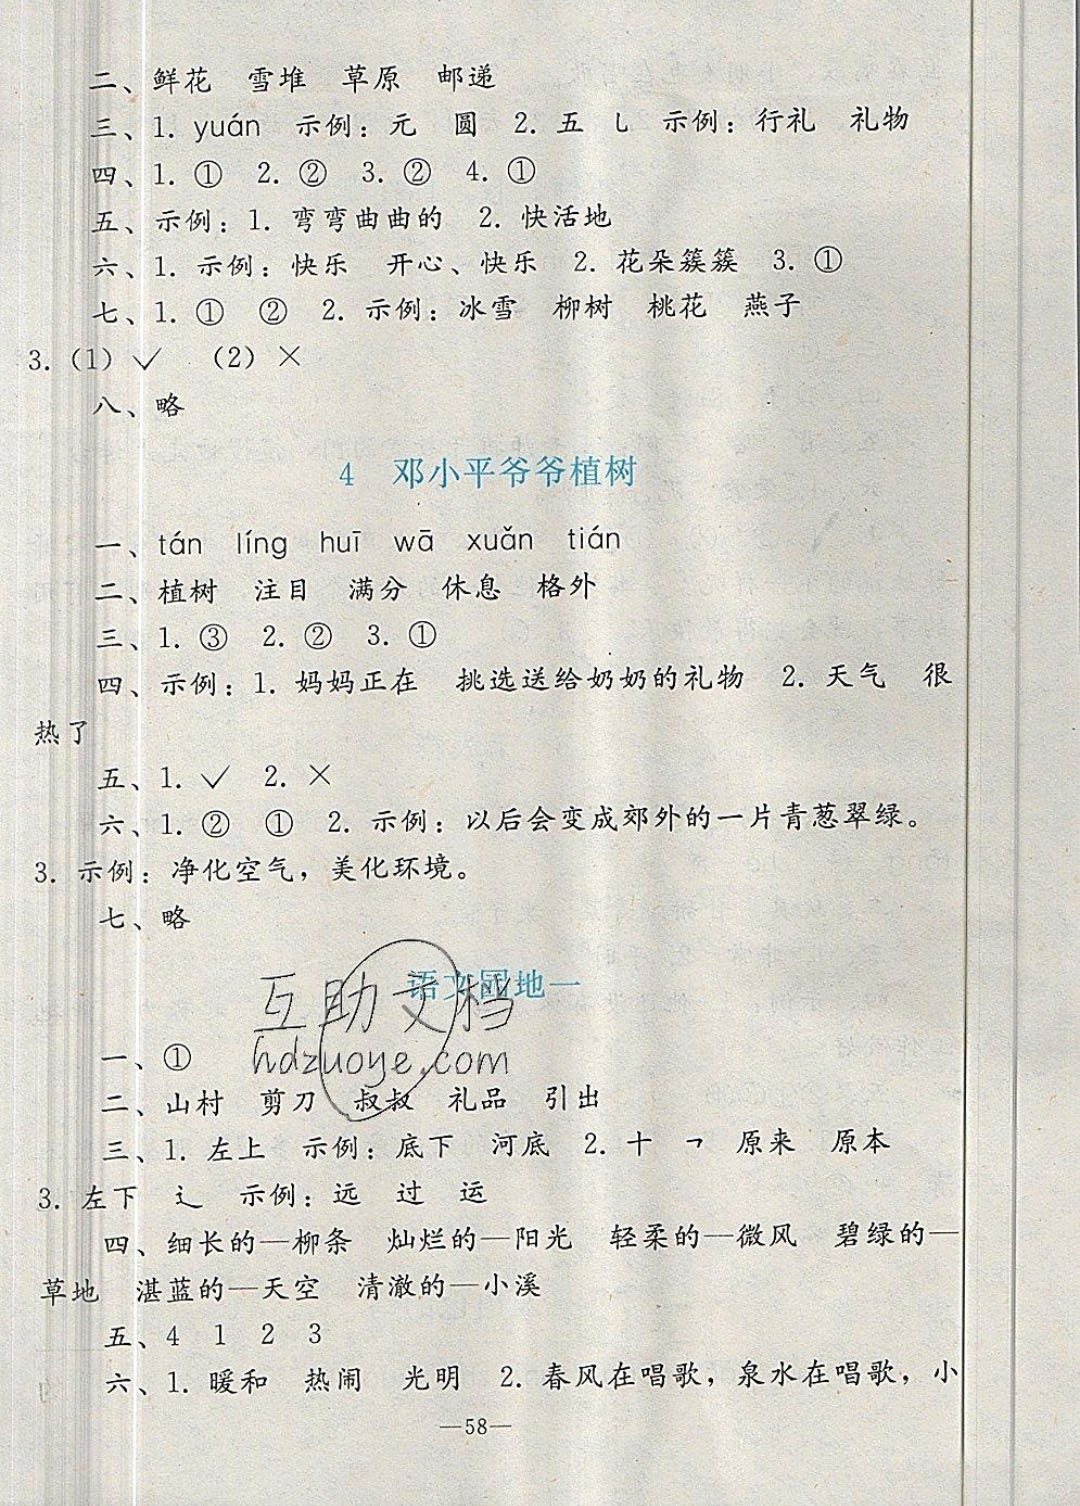 二、鲜花　雪堆　草原　邮递
三、1. yuán　示例：元　圆　2. 五　乚　示例：行礼　礼物
四、1. ①　2. ②　3. ②　4. ①
五、示例：1. 弯弯曲曲的　2. 快活地
六、1. 示例：快乐　开心、快乐　2. 花朵簇簇　3. ①
七、1. ①　②　2. 示例：冰雪　柳树　桃花　燕子
3.（1）✓　（2）×
八、略
4　邓小平爷爷植树
一、tán　líng　huī　wā　xuǎn　tián
二、植树　注目　满分　休息　格外
三、1. ③　2. ②　3. ①
四、示例：1. 妈妈正在　挑选送给奶奶的礼物　2. 天气　很
热了
五、1. ✓　2. ×
六、1. ②　①　2. 示例：以后会变成郊外的一片青葱翠绿。
3. 示例：净化空气，美化环境。
七、略
语文园地一
互助文档
hdzuoye.com
一、①
二、山村　剪刀　叔叔　礼品　引出
三、1. 左上　示例：底下　河底　2. 十　㇕　原来　原本
3. 左下　辶　示例：远　过　运
四、细长的—柳条　灿烂的—阳光　轻柔的—微风　碧绿的—
草地　湛蓝的—天空　清澈的—小溪
五、4　1　2　3
六、1. 暖和　热闹　光明　2. 春风在唱歌，泉水在唱歌，小
—58—